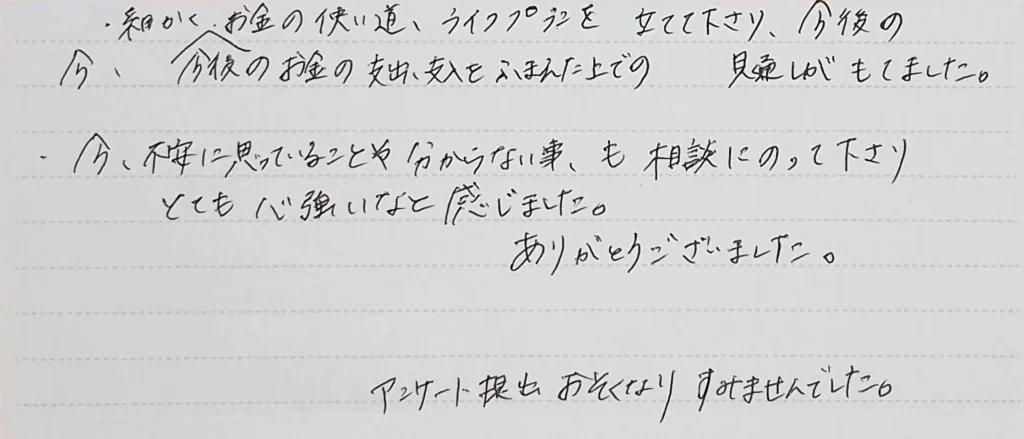 ・細かく、お金の使い道、ライフプランを 立てて下さり、今後の
今、今後のお金の支出、支入をふまえた上での 見通しがもてました。
・今、不安に思っていることや分からない事、も相談にのって下さり
とても心強いなと感じました。
ありがとうございました。
アンケート提出おそくなりすみませんでした。